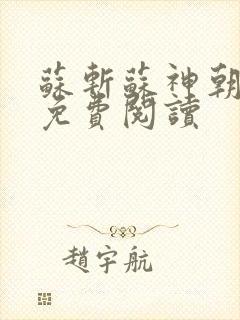 蘇斬蘇神朝
免費閱讀
趙宇航